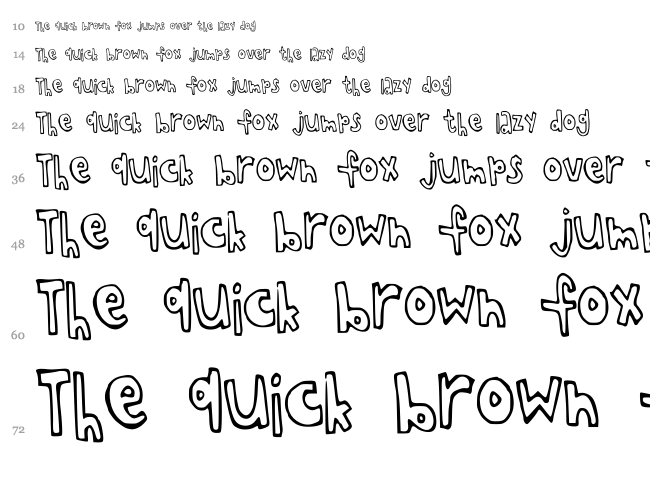 10 The quick brown fox jumps over the lazy dog
14 The quick brown fox jumps over the lazy dog
18 The quick brown fox jumps over the lazy dog
24 The quick brown fox jumps over the lazy dog
36 The quick brown fox jumps over
48 The quick brown fox jump
60 The quick brown fox
72 The quick brown